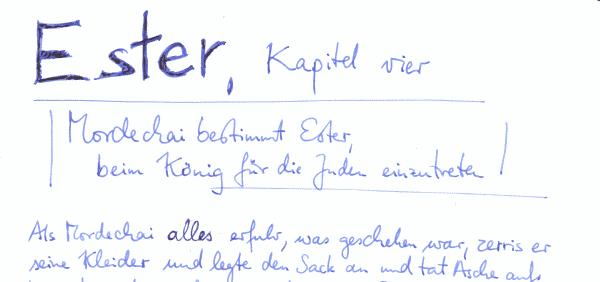 Ester, Kapitel vier
Mordechai bestimmt Ester,
beim König für die Juden einzutreten
Als Mordechai alles erfuhr, was geschehen war, zerris er
seine Kleider und legte den Sack an und tat Asche aufs